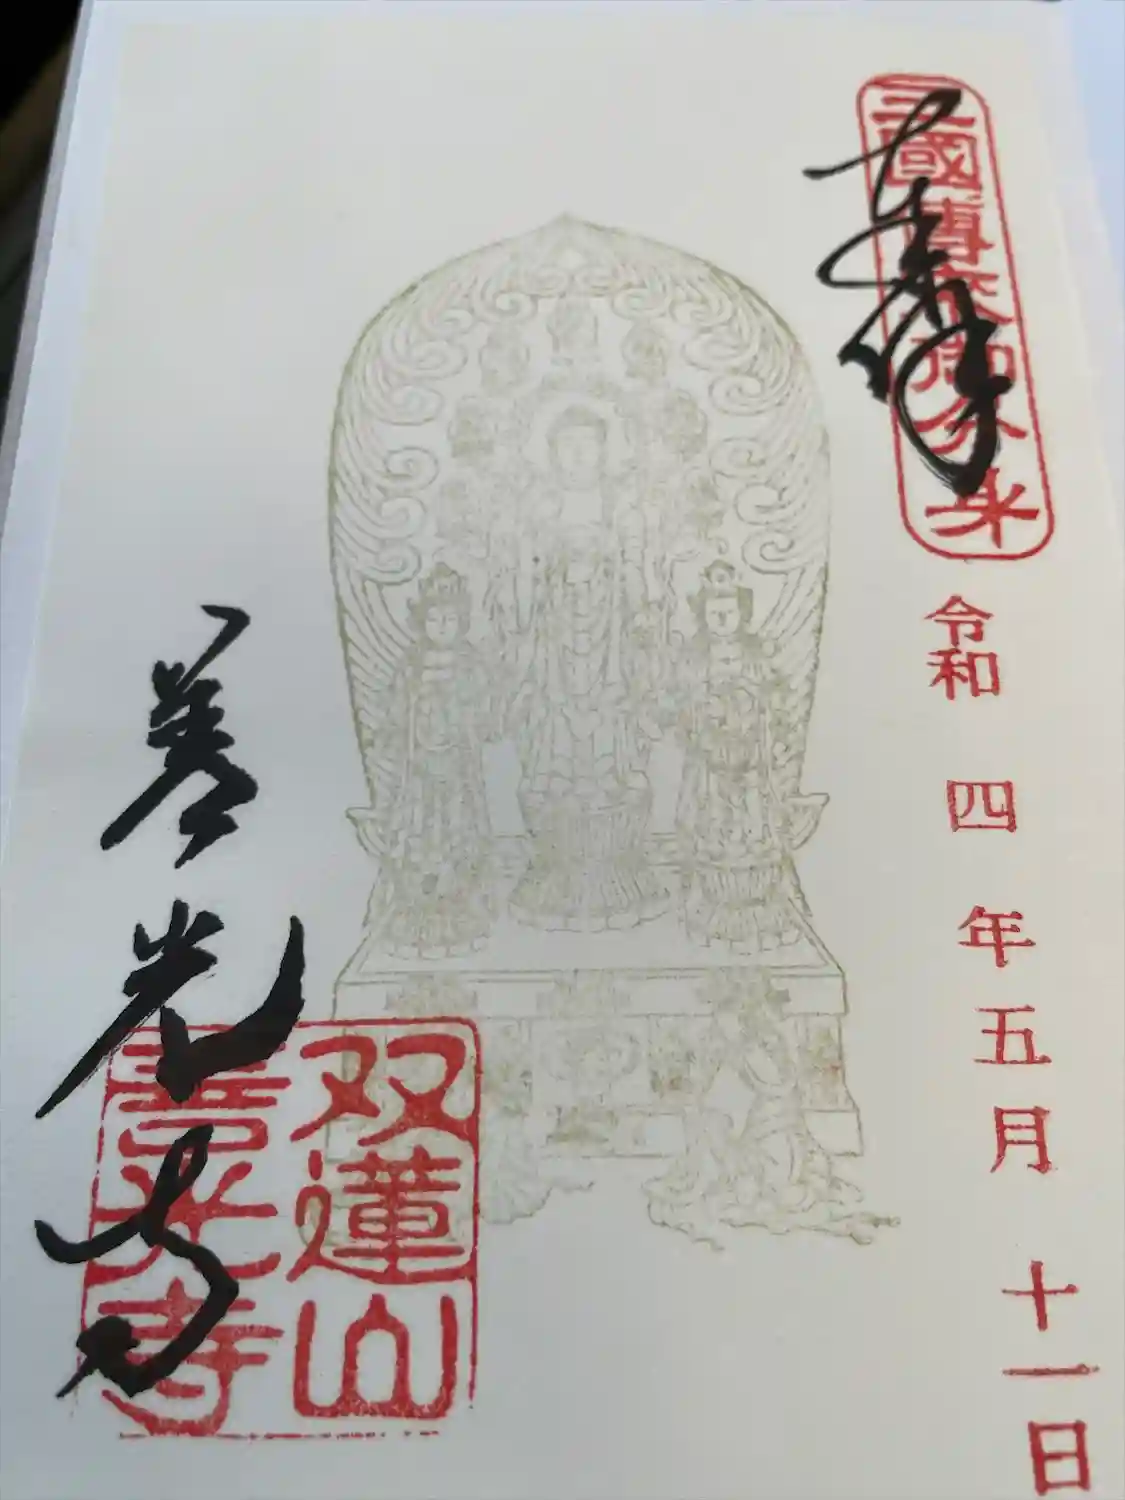 三國傳来御分身
奉拝
令和 四 年 五 月 十一 日
善光寺
双蓮山
善光寺